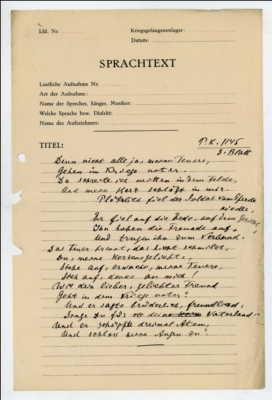 Lfd. Nr.
Kriegsgefangenenlager:
Datum:
SPRACHTEXT
Lautliche Aufnahme Nr.
Art der Aufnahme:
Name der Sprecher, Sänger, Musiker:
Welche Sprache bzw. Dialekt:
Name des Aufzeichners:
P.K. 1145
3. Blatt
TITEL:
Denn nicht alle ja, meine Teuere,
Gehen im Kriege unter.
Du mitten im dem Felde,
Und mein Herz schlägt in mir.
Plötzlich fiel der Soldat vom Pferde
nieder
Er fiel auf die Erde, auf dem
Ihn hoben die Freunde auf
Und trugen ihn zum Verband.
Das teuer
Du, meine Herzensgeliebte,
Stehe auf, erwache, meine Teuere,
Steh auf, denke an mich!
Weil dein lieber, geliebter Freund
Geht in dem Kriege unter!
Und er sagte brüderlich, freundlich,
Sorge Du für das Vaterland
Und er schöpfte dreimal Atem,
Und schloss seine Augen zu.